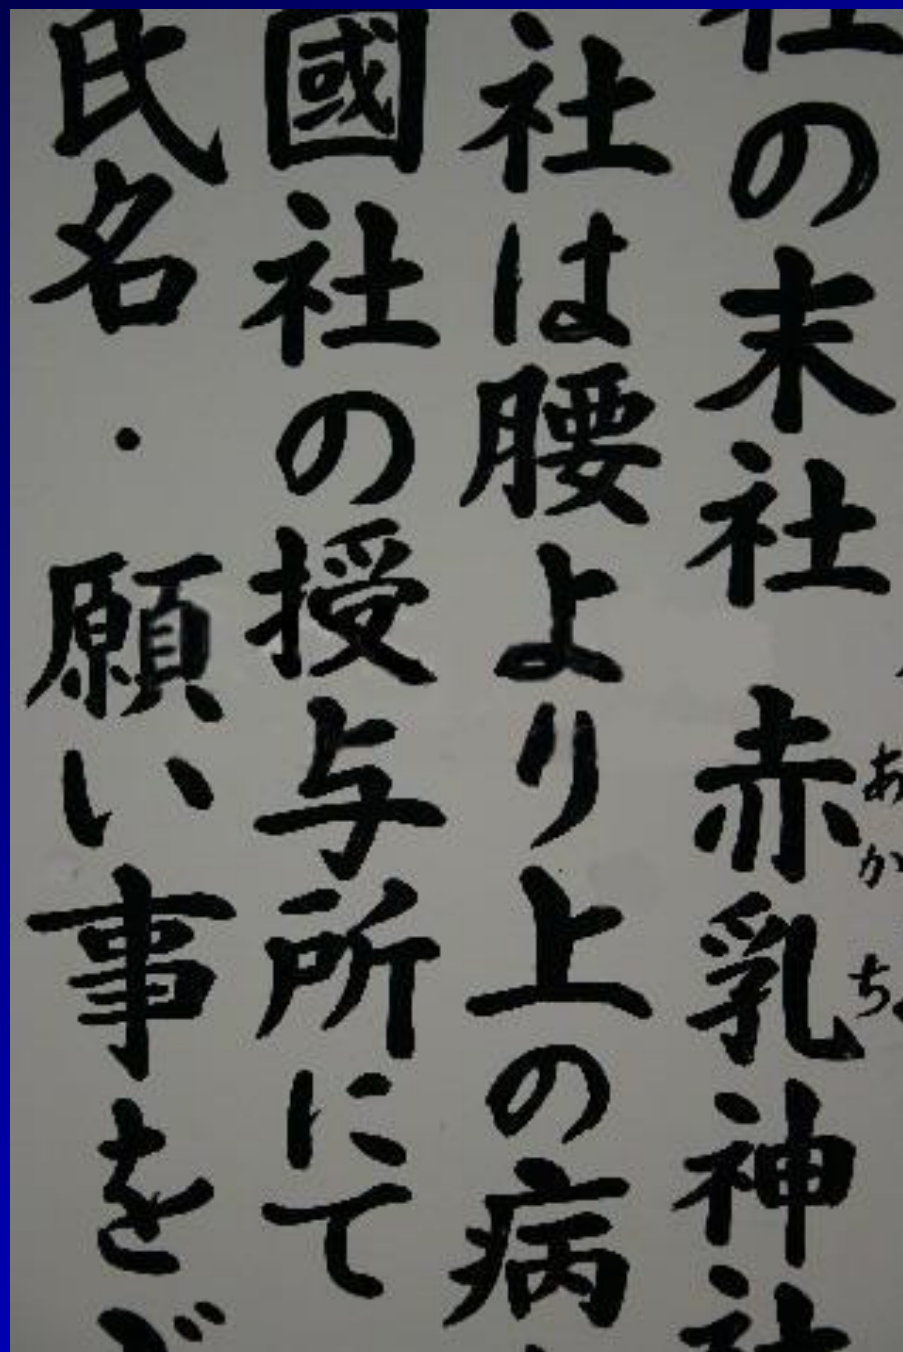 社の末社 赤乳神社
あかち
社は腰より上の病
國社の授与所にて
氏名・願い事をご